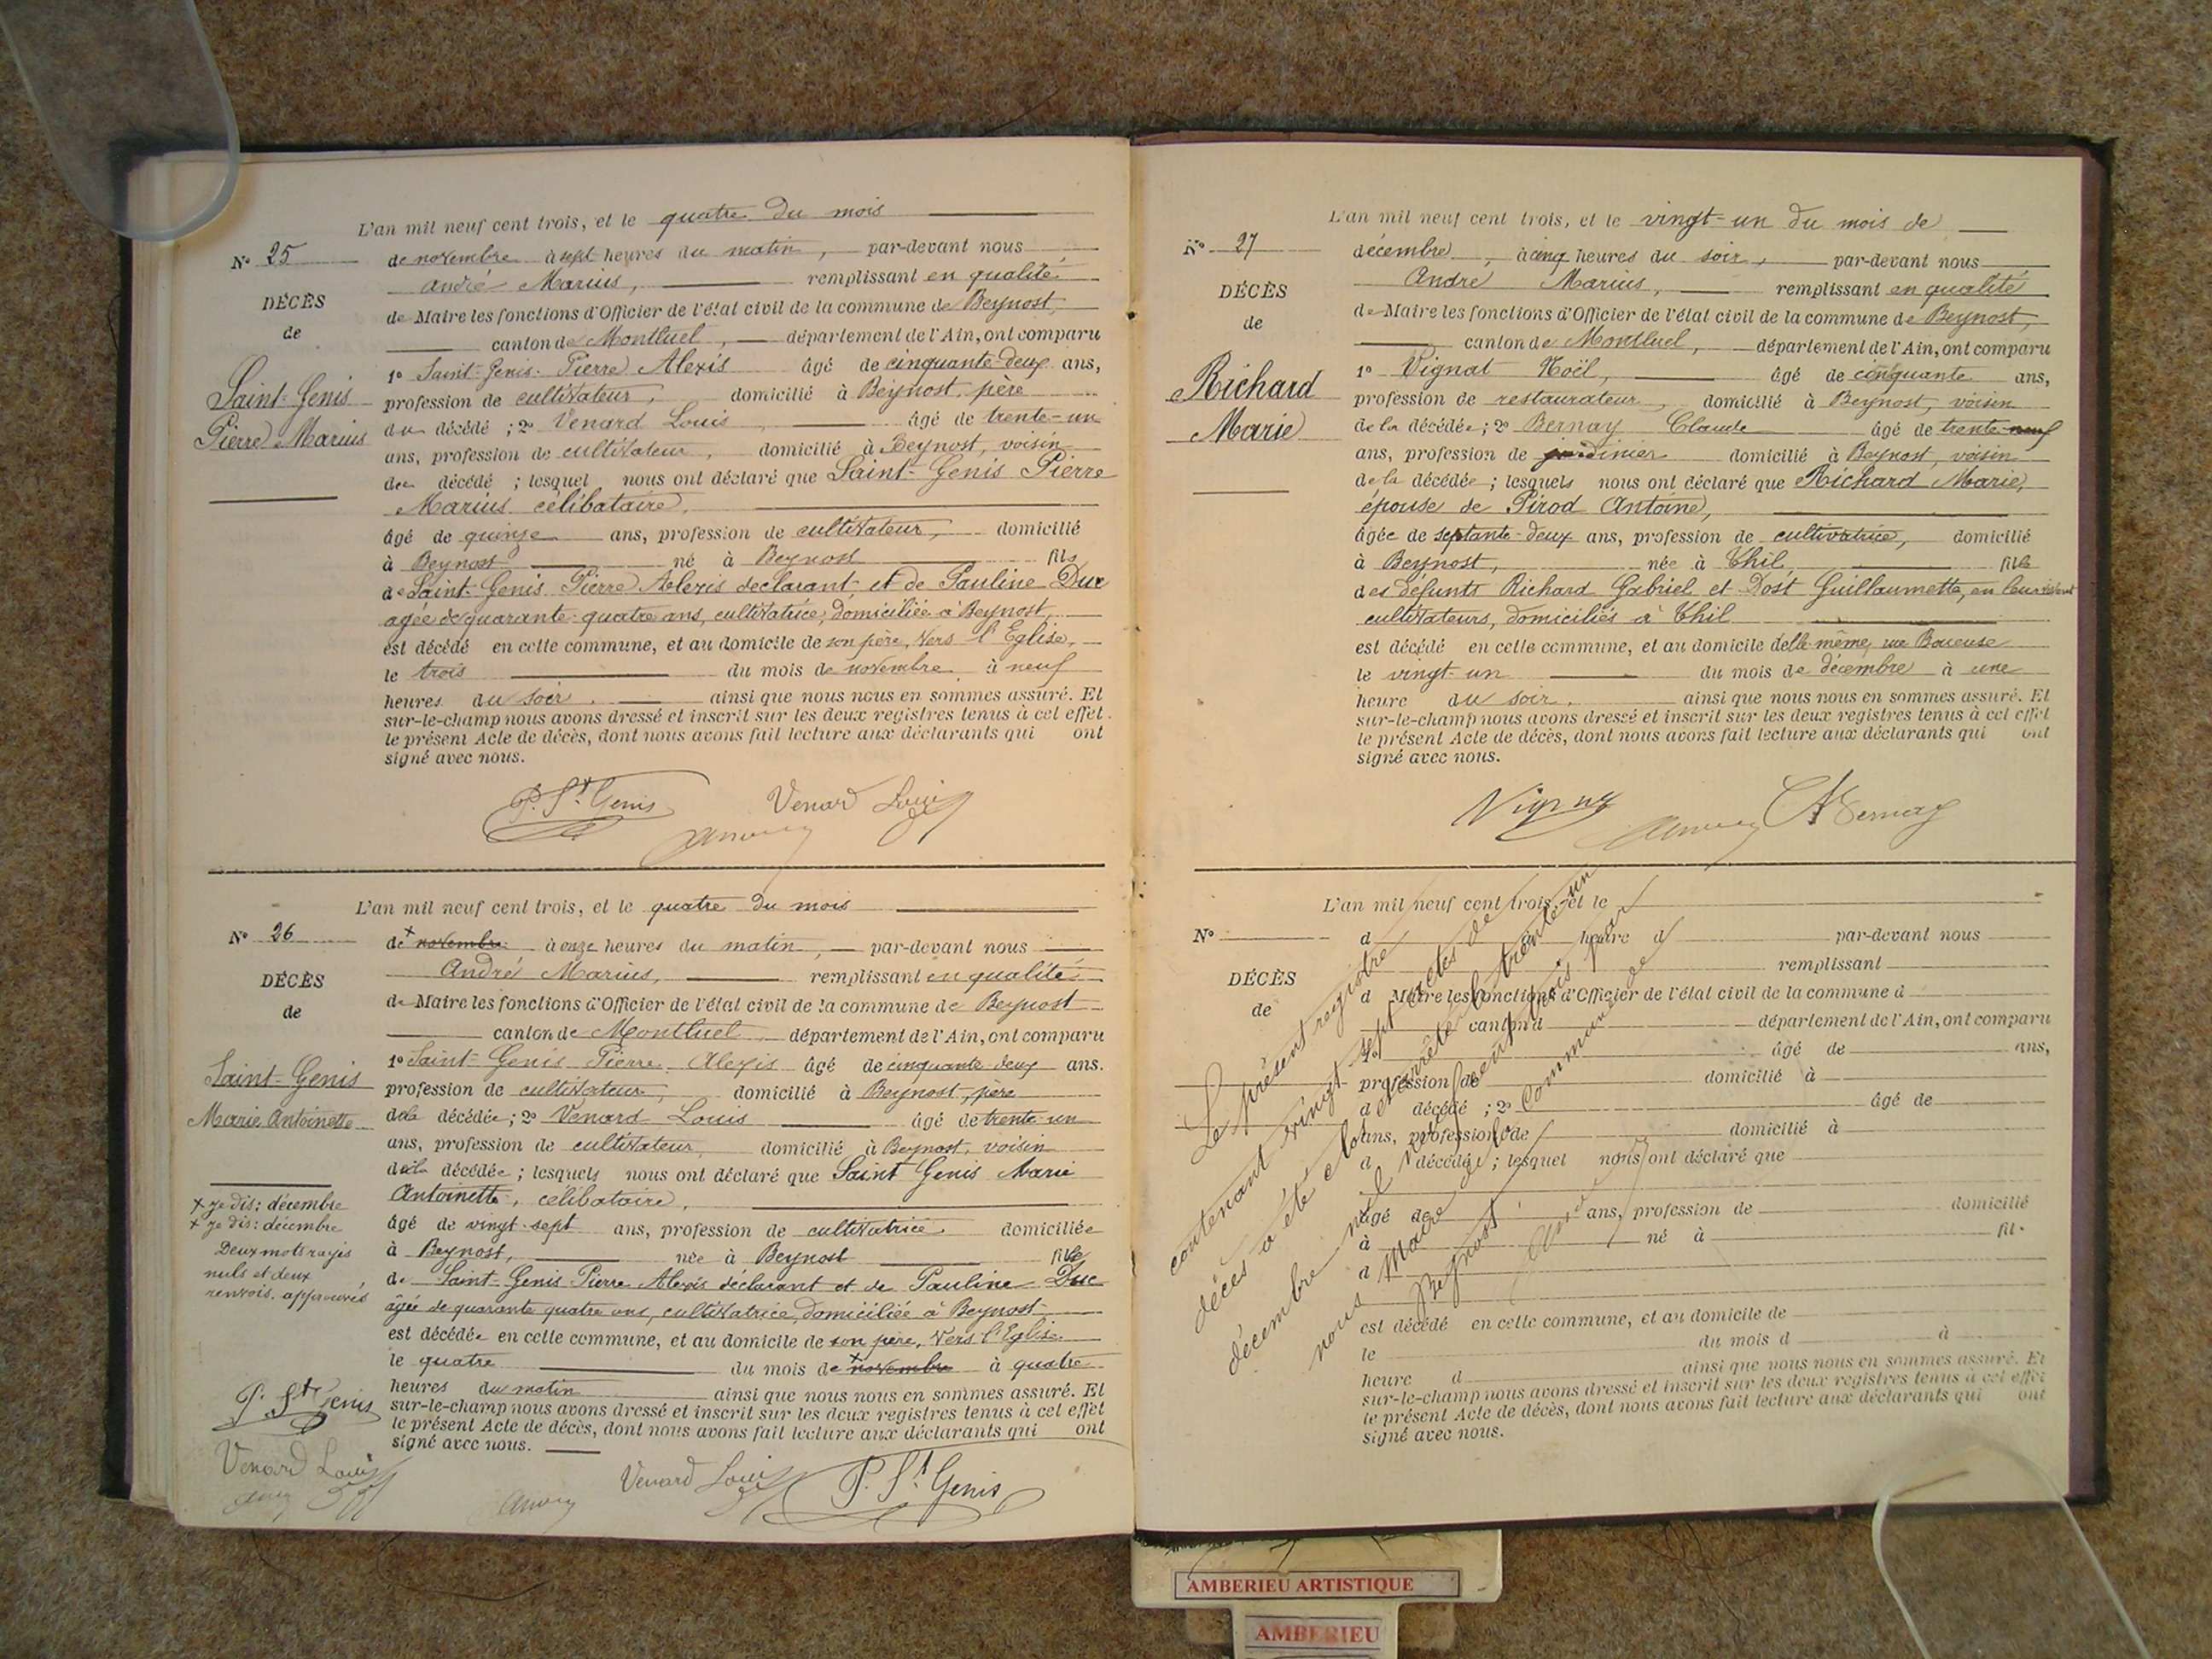 L'an mil neuf cent trois, et le quatre du mois
N° 25
de novembre à sept heures du matin, par-devant nous
André Marius, remplissant en qualité
DÉCÈS
de Maire les fonctions d'Officier de l'état civil de la commune de Beynost,
de
canton de Montluel, département de l'Ain, ont comparu
1° Saint-Genis Pierre Alexis âgé de cinquante-deux ans,
Saint-Genis
profession de cultivateur, domicilié à Beynost, père
Pierre Marius
du décédé ; 2° Venard Louis, âgé de trente-un
ans, profession de cultivateur, domicilié à Beynost, voisin
du décédé ; lesquels nous ont déclaré que Saint-Genis Pierre
Marius célibataire,
âgé de quinze ans, profession de cultivateur, domicilié
à Beynost né à Beynost fils
de Saint-Genis Pierre Alexis déclarant et de Pauline Duc
agée de quarante-quatre ans, cultivatrice, domiciliée à Beynost,
est décédé en cette commune, et au domicile de son père, Vers l'Eglise,
le trois du mois de novembre à neuf
heures du soir. ainsi que nous nous en sommes assuré. Et
sur-le-champ nous avons dressé et inscrit sur les deux registres tenus à cet effet
le présent Acte de décès, dont nous avons fait lecture aux déclarants qui ont
signé avec nous.
P. St Genis Venard Louis
L'an mil neuf cent trois, et le quatre du mois
N° 26
de + novembre à onze heures du matin, par-devant nous
André Marius, remplissant en qualité
DÉCÈS
de Maire les fonctions d'Officier de l'état civil de la commune de Beynost
de
canton de Montluel département de l'Ain, ont comparu
1° Saint-Genis Pierre Alexis âgé de cinquante-deux ans.
Saint-Genis
profession de cultivateur, domicilié à Beynost, père
Marie Antoinette
de la décédée ; 2° Venard Louis âgé de trente-un
ans, profession de cultivateur, domicilié à Beynost, voisin
de la décédée ; lesquels nous ont déclaré que Saint Genis Marie
Antoinette, célibataire,
+ je dis : décembre
+ je dis : décembre
Deux mots rayés
nuls et deux
renvois approuvés
âgé de vingt-sept ans, profession de cultivatrice domiciliée
à Beynost, née à Beynost fille
de Saint-Genis Pierre Alexis déclarant et de Pauline Duc
âgée de quarante quatre ans, cultivatrice, domiciliée à Beynost
est décédée en cette commune, et au domicile de son père, Vers l'Eglise
le quatre du mois de + novembre à quatre
heures du matin ainsi que nous nous en sommes assuré. Et
sur-le-champ nous avons dressé et inscrit sur les deux registres tenus à cet effet
le présent Acte de décès, dont nous avons fait lecture aux déclarants qui ont
signé avec nous.
P. St Genis
Venard Louis
Venard Louis P. St Genis
L'an mil neuf cent trois, et le vingt-un du mois de
N° 27
décembre, à cinq heures du soir, par-devant nous
André Marius, remplissant en qualité
DÉCÈS
de Maire les fonctions d'Officier de l'état civil de la commune de Beynost,
de
canton de Montluel, département de l'Ain, ont comparu
1° Vignat Noël, âgé de cinquante ans,
Richard
profession de restaurateur, domicilié à Beynost, voisin
Marie
de la décédée ; 2° Bernay Claude âgé de trente-neuf
ans, profession de jardinier domicilié à Beynost, voisin
de la décédée ; lesquels nous ont déclaré que Richard Marie,
épouse de Pirod Antoine,
âgée de septante-deux ans, profession de cultivatrice, domicilié
à Beynost, née à Thil fille
des défunts Richard Gabriel et Dost Guillaumette, en leur vivant
cultivateurs, domiciliés à Thil
est décédé en cette commune, et au domicile d'elle-même, rue Boueuse
le vingt-un du mois de décembre à une
heure du soir. ainsi que nous nous en sommes assuré. Et
sur-le-champ nous avons dressé et inscrit sur les deux registres tenus à cet effet
le présent Acte de décès, dont nous avons fait lecture aux déclarants qui ont
signé avec nous.
Bernay
L'an mil neuf cent trois, et le
N°
d à heure d par-devant nous
remplissant
DÉCÈS
d Maire les fonctions d'Officier de l'état civil de la commune d
de
canton d département de l'Ain, ont comparu
1° âgé de ans,
profession de domicilié à
d décédé ; 2° âgé de
ans, profession de domicilié à
d décédé ; lesquel nous ont déclaré que
âgé de ans, profession de domicilié
à né à fil
d
est décédé en cette commune, et au domicile de
le du mois d à
heure d ainsi que nous nous en sommes assuré. Et
sur-le-champ nous avons dressé et inscrit sur les deux registres tenus à cet effet
le présent Acte de décès, dont nous avons fait lecture aux déclarants qui ont
signé avec nous.
Le présent registre
contenant vingt-sept actes de
décès a été clos et arrêté le trente un
décembre mil neuf cent trois par
nous Maire de la Commune de
Beynost
AMBERIEU ARTISTIQUE
AMBERIEU